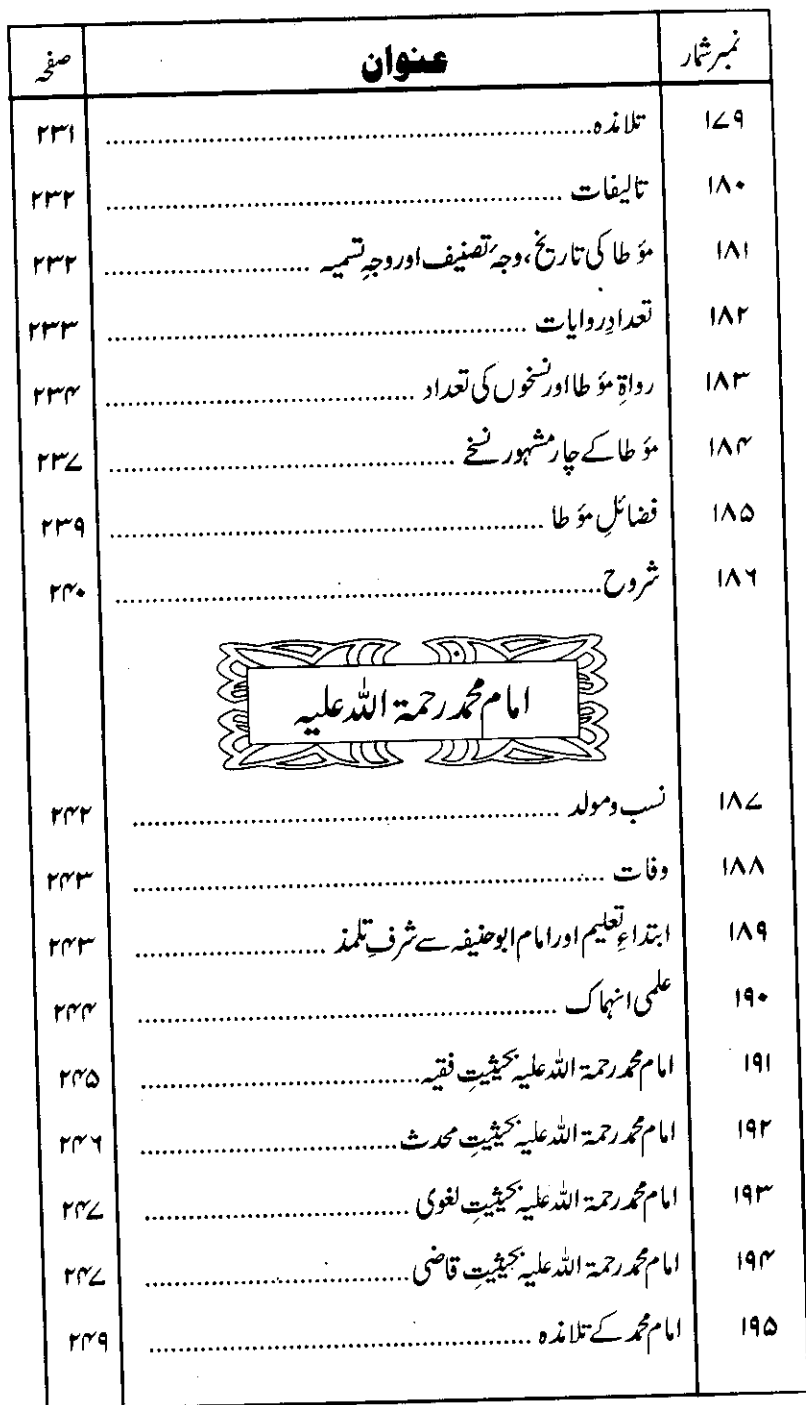 نمبر شمار عنوان صفحہ
۱۷۹ تلامذہ ........ ۲۳۱
۱۸۰ تالیفات ........ ۲۳۲
۱۸۱ مؤطا کی تاریخ، وجۂ تصنیف اور وجہِ تسمیہ ........ ۲۳۲
۱۸۲ تعدادِ روایات ........ ۲۳۳
۱۸۳ رواۃِ مؤطا اور نسخوں کی تعداد ........ ۲۳۴
۱۸۴ مؤطا کے چار مشہور نسخے ........ ۲۳۷
۱۸۵ فضائلِ مؤطا ........ ۲۳۹
۱۸۶ شروح ........ ۲۴۰
امام محمد رحمۃ اللہ علیہ
۱۸۷ نسب ومولد ........ ۲۴۲
۱۸۸ وفات ........ ۲۴۳
۱۸۹ ابتداءِ تعلیم اور امام ابوحنیفہ سے شرفِ تلمذ ........ ۲۴۳
۱۹۰ علمی انہماک ........ ۲۴۴
۱۹۱ امام محمد رحمۃ اللہ علیہ بحیثیتِ فقیہ ........ ۲۴۵
۱۹۲ امام محمد رحمۃ اللہ علیہ بحیثیتِ محدث ........ ۲۴۶
۱۹۳ امام محمد رحمۃ اللہ علیہ بحیثیتِ لغوی ........ ۲۴۷
۱۹۴ امام محمد رحمۃ اللہ علیہ بحیثیتِ قاضی ........ ۲۴۷
۱۹۵ امام محمد کے تلامذہ ........ ۲۴۹